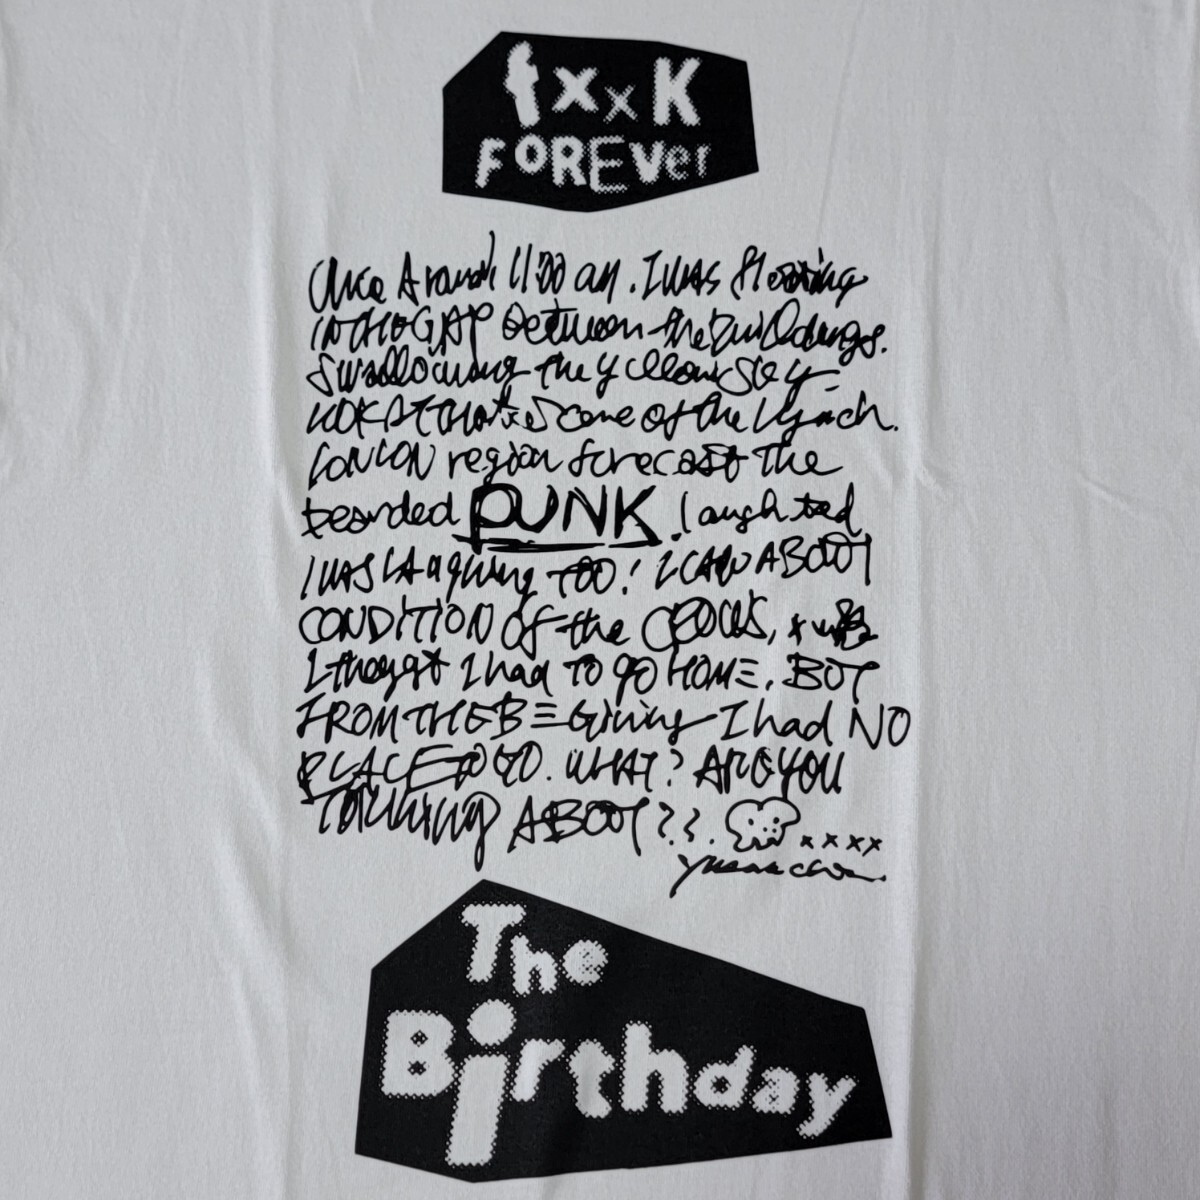 fxxK
FOREVer
Once Around 11:00 am. I WAS floating
IN THE GAP between the buildings.
Swallowing the yellow sky
that scene of the Lynch.
region forecast The
bearded PUNK laughted
I WAS LAughing TOO! ABOUT
CONDITION of the
I thougt I had TO go HOME, BUT
FROM THE BEGining I had NO
PLACE TO GO. WHAT? ARE YOU
TALKING ABOUT??. xxxx
The
Birthday